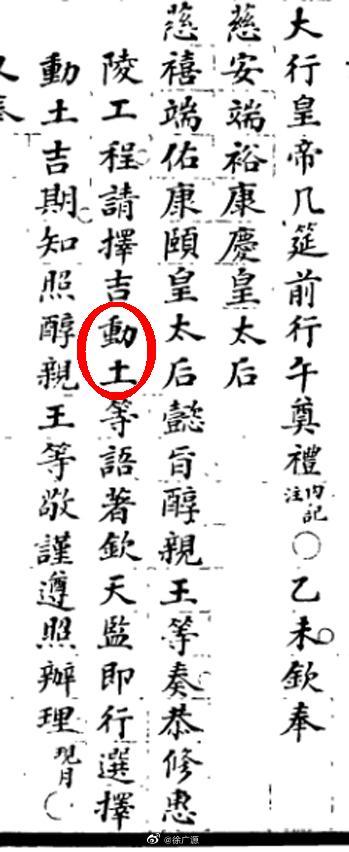 大行皇帝几筵前行午奠禮內記注○乙未欽奉
慈安端裕康慶皇太后
慈禧端佑康頤皇太后懿旨醇親王等奏恭修惠
陵工程請擇吉動土等語著欽天監即行選擇
動土吉期知照醇親王等敬謹遵照辦理現月○
@徐广源